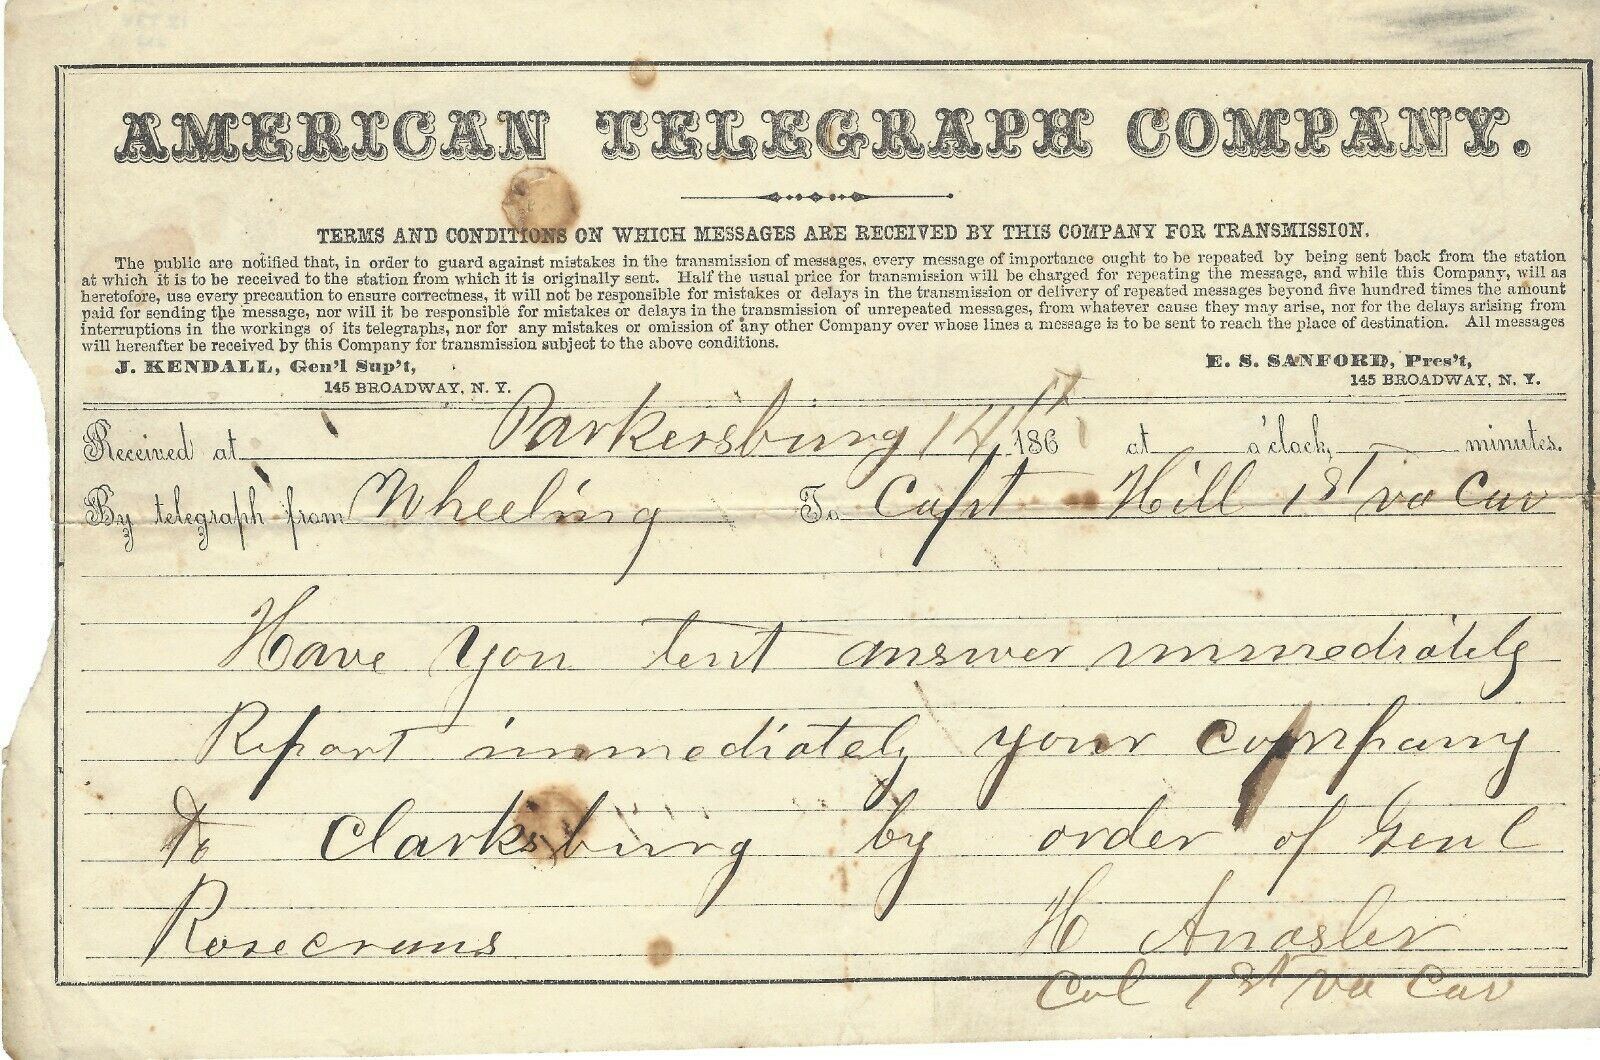 AMERICAN TELEGRAPH COMPANY.
TERMS AND CONDITIONS ON WHICH MESSAGES ARE RECEIVED BY THIS COMPANY FOR TRANSMISSION.
The public are notified that, in order to guard against mistakes in the transmission of messages, every message of importance ought to be repeated by being sent back from the station
at which it is to be received to the station from which it is originally sent. Half the usual price for transmission will be charged for repeating the message, and while this Company, will as
heretofore, use every precaution to ensure correctness, it will not be responsible for mistakes or delays in the transmission or delivery of repeated messages beyond five hundred times the amount
paid for sending the message, nor will it be responsible for mistakes or delays in the transmission of unrepeated messages, from whatever cause they may arise, nor for the delays arising from
interruptions in the workings of its telegraphs, nor for any mistakes or omission of any other Company over whose lines a message is to be sent to reach the place of destination. All messages
will hereafter be received by this Company for transmission subject to the above conditions.
J. KENDALL, Gen'l Sup't,
145 BROADWAY, N. Y.
E. S. SANFORD, Pres't,
145 BROADWAY, N. Y.
Received at Parkersburg 14th 1861 at o'clock, minutes.
By telegraph from Wheeling To Capt Hill 1st va Cav
Have you tent answer immediately
Report immediately your company
to Clarksburg by order of Genl
Rosecrans H
Col 1st va Cav